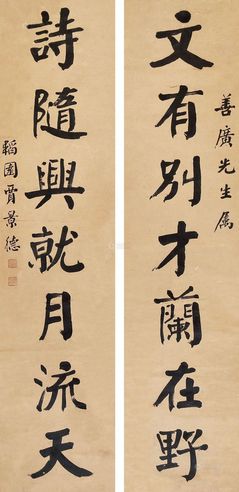 善廣先生属
文有別才蘭在野
詩隨興就月流天
韜園賈景德